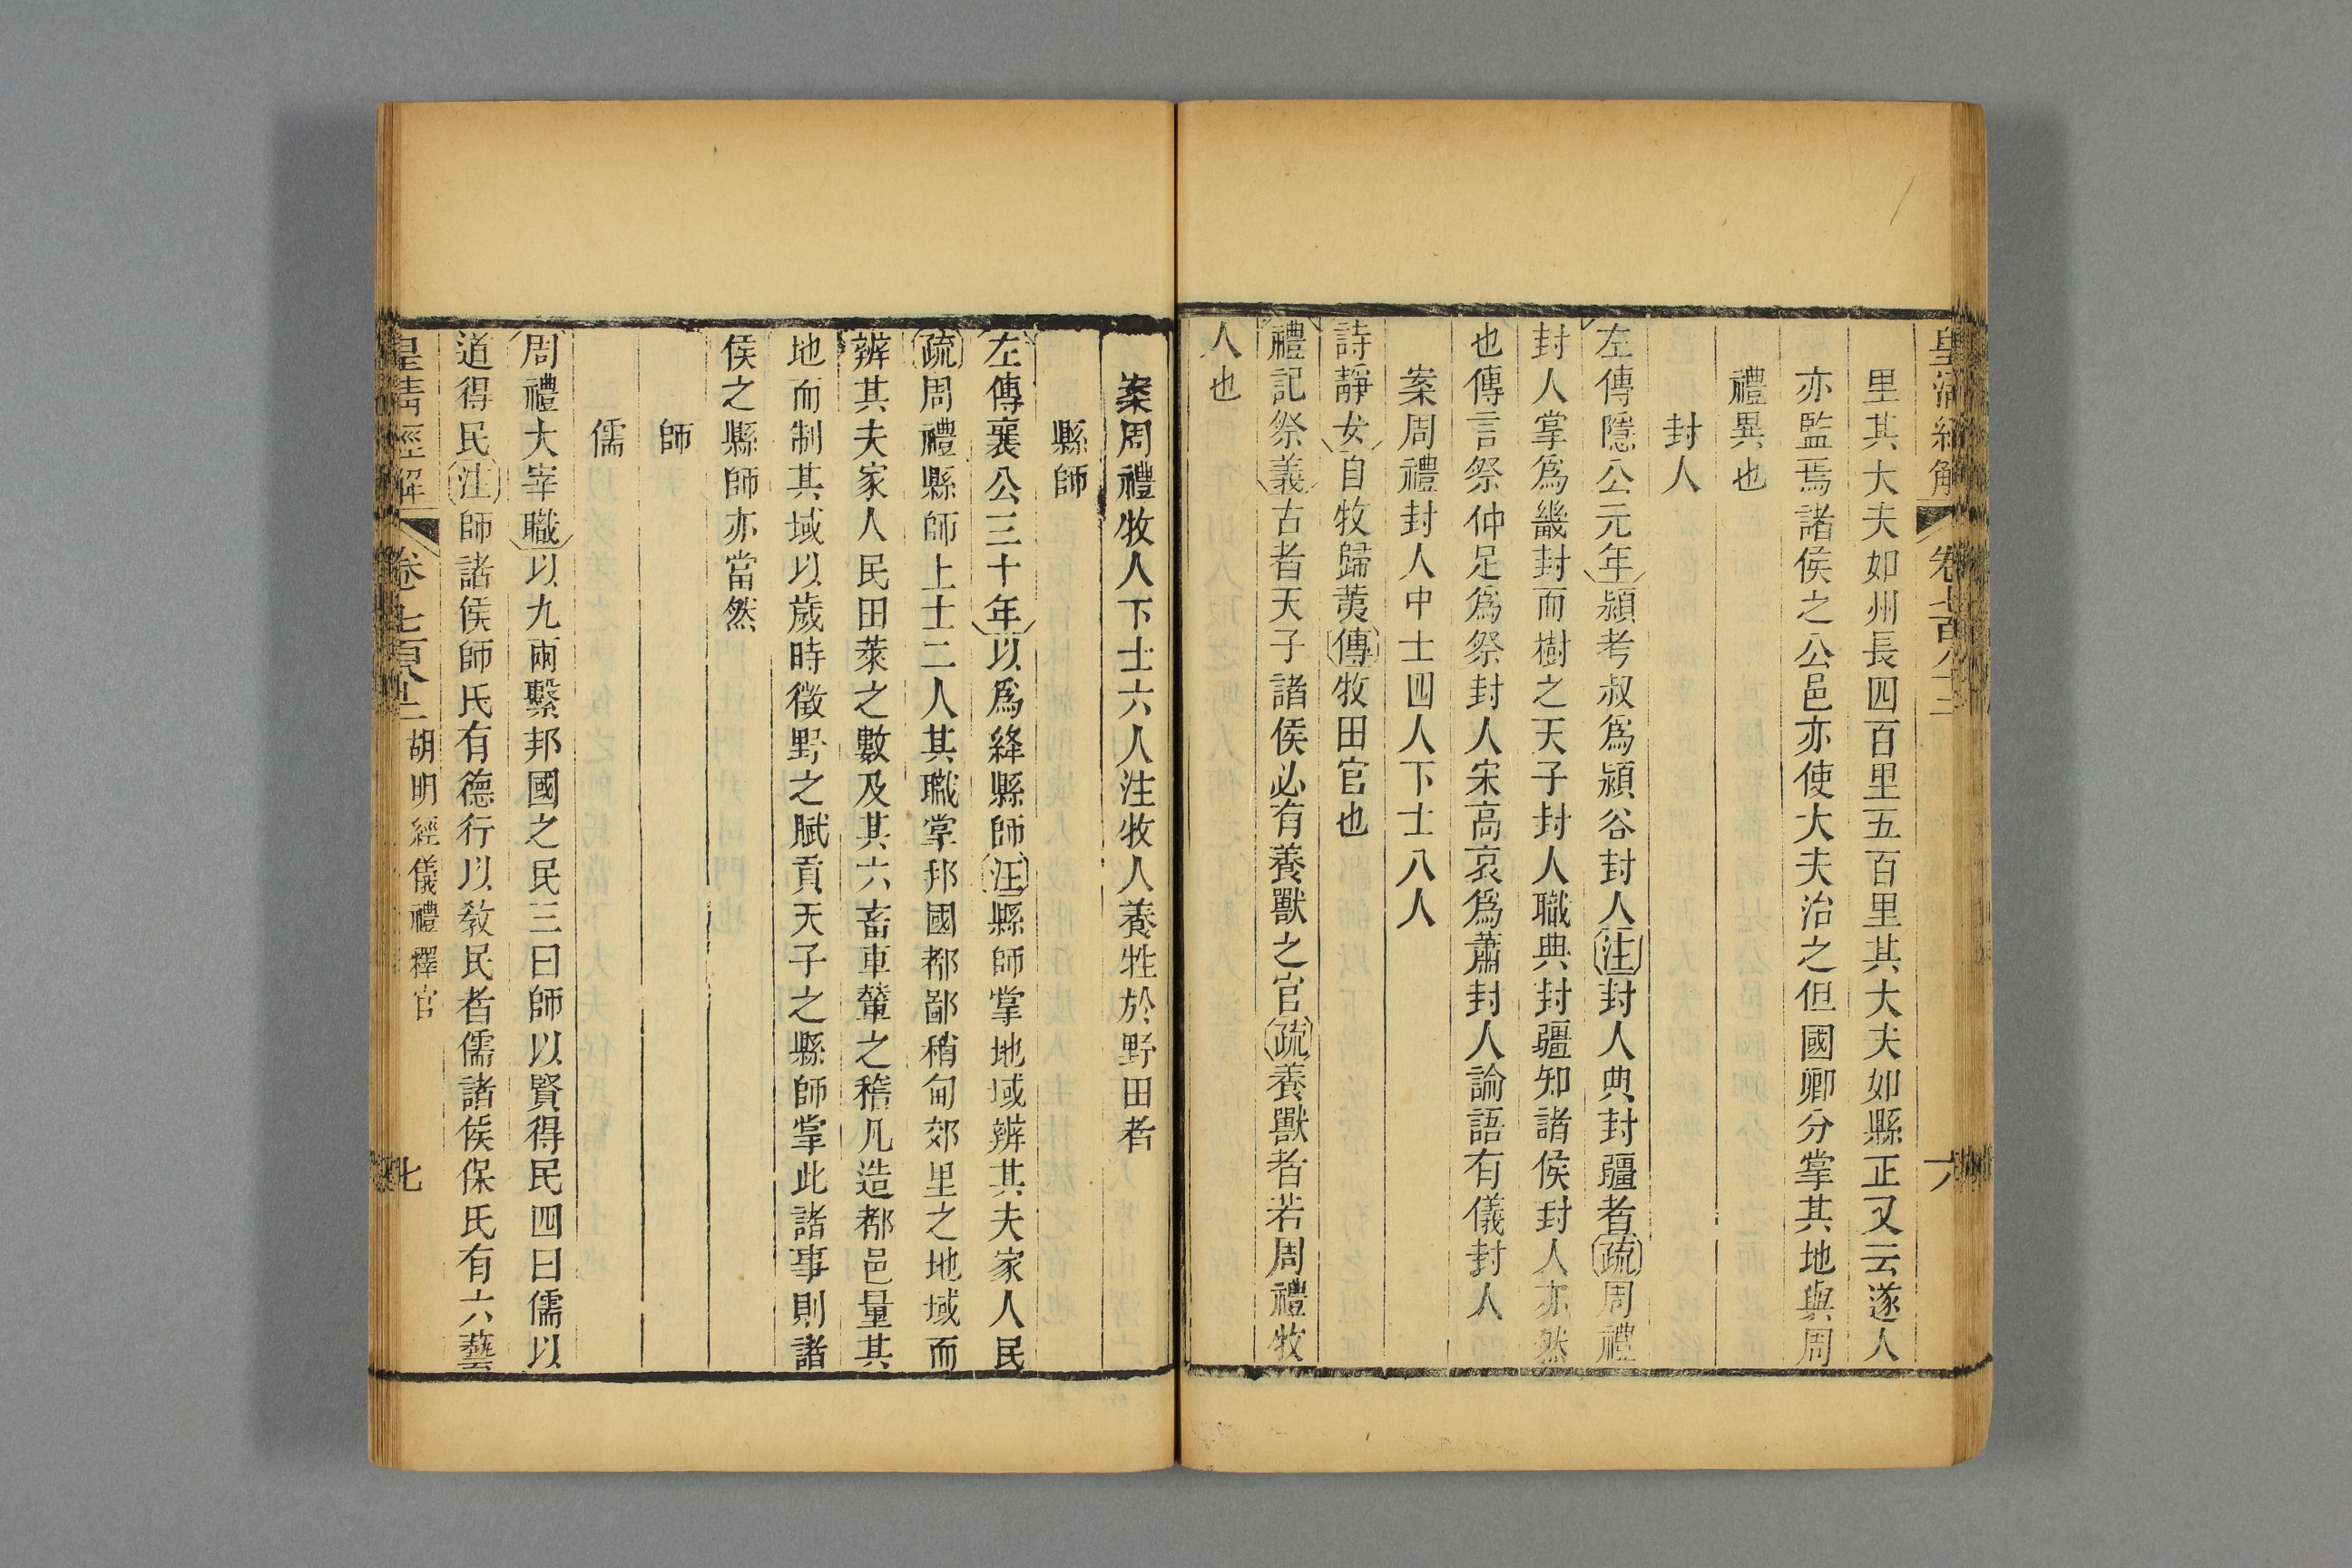 皇清經解 卷七百八十三 六
里其大夫如州長四百里五百里其大夫如縣正又云遂人
亦監焉諸侯之公邑亦使大夫治之但國卿分掌其地與周
禮異也
封人
左傳隱公元年潁考叔爲潁谷封人注封人典封疆者疏周禮
封人掌爲畿封而樹之天子封人職典封疆知諸侯封人亦然
也傳言祭仲足爲祭封人宋高哀爲蕭封人論語有儀封人
案周禮封人中士四人下士八人
詩靜女自牧歸荑傳牧田官也
禮記祭義古者天子諸侯必有養獸之官疏養獸者若周禮牧
人也
案周禮牧人下士六人注牧人養牲於野田者
縣師
左傳襄公三十年以爲絳縣師注縣師掌地域辨其夫家人民
疏周禮縣師上士二人其職掌邦國都鄙稍甸郊里之地域而
辨其夫家人民田萊之數及其六畜車輦之稽凡造都邑量其
地而制其域以歲時徵野之賦貢天子之縣師掌此諸事則諸
侯之縣師亦當然
師
儒
周禮大宰職以九兩繫邦國之民三曰師以賢得民四曰儒以
道得民注師諸侯師氏有德行以敎民者儒諸侯保氏有六藝
皇清經解 卷七百八十三 胡明經儀禮釋官 七